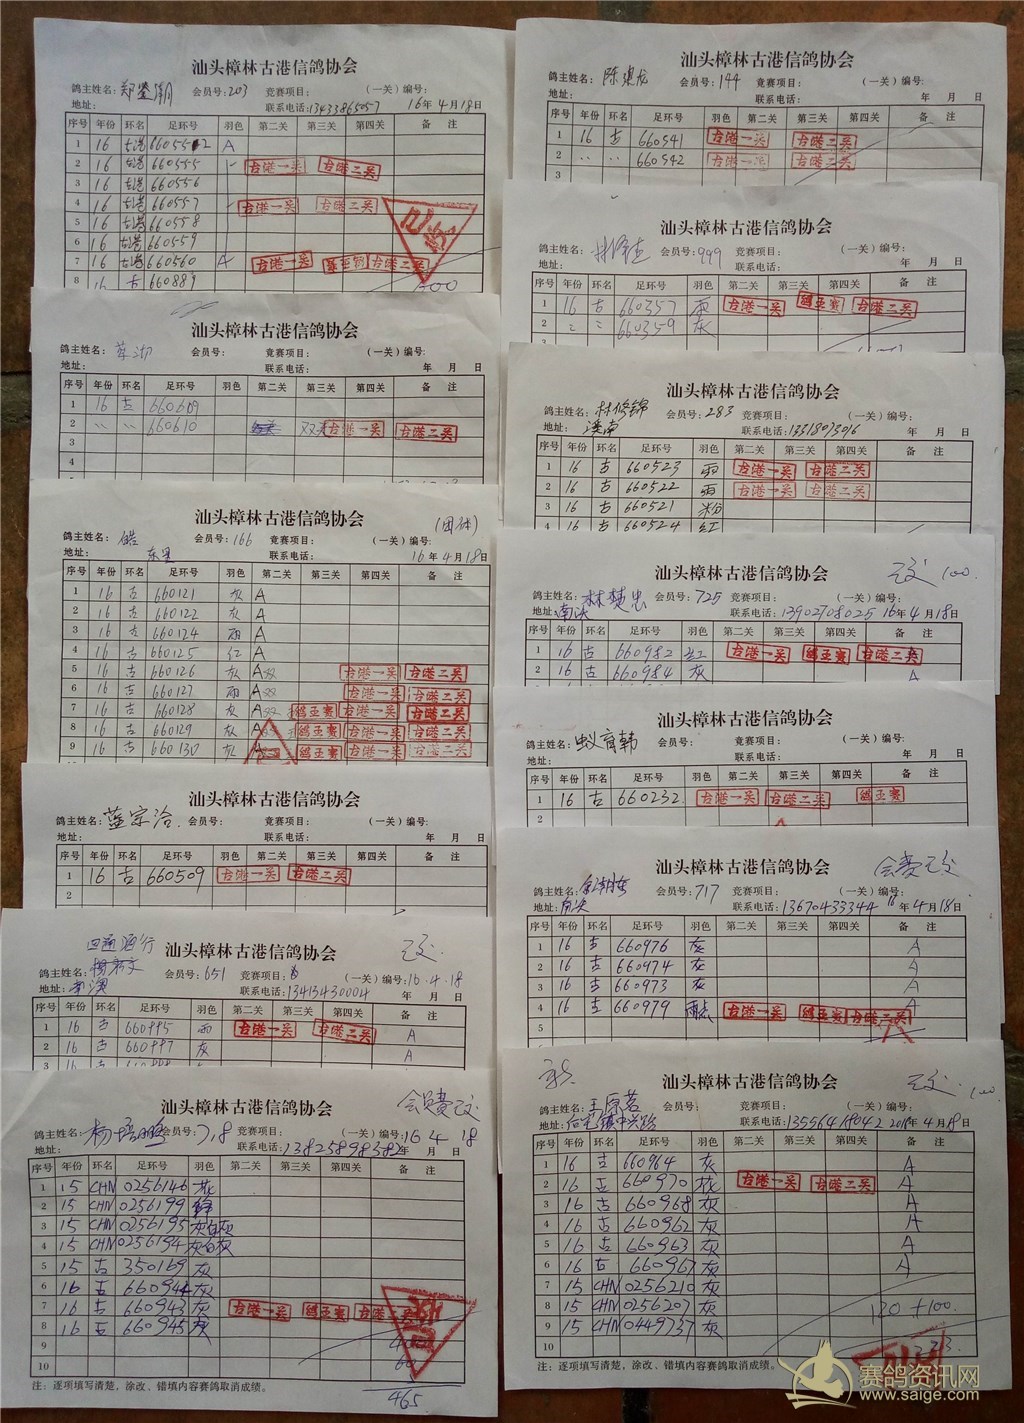 汕头樟林古港信鸽协会
鸽主姓名: 会员号:203 竞赛项目: (一关)编号:
地址: 联系电话:13433865057 16年4月18日
序号 年份 环名 足环号 羽色 第二关 第三关 第四关 备 注
1 16 古港 A
2 16 古港 660555 古港一关 古港二关
3 16 古港 660556
4 16 古港 660557 古港一关 古港二关
5 16 古港 660558
6 16 古港 660559
7 16 古港 660560 A 古港一关 古港二关
8 16 古 660889
汕头樟林古港信鸽协会
鸽主姓名: 会员号: 竞赛项目: (一关)编号:
地址: 联系电话: 年 月 日
序号 年份 环名 足环号 羽色 第二关 第三关 第四关 备 注
1 16 古 660609
2 660610 古港一关 古港二关
3
4
汕头樟林古港信鸽协会 (团体)
鸽主姓名:皓 会员号:166 竞赛项目: (一关)编号:
地址:东里 联系电话: 16年4月18日
序号 年份 环名 足环号 羽色 第二关 第三关 第四关 备 注
1 16 古 660121 灰 A
2 16 古 660122 灰 A
3 16 古 660124 雨 A
4 16 古 660125 红 A
5 16 古 660126 灰 A双 古港一关 古港二关
6 16 古 660127 雨 A双 古港一关 古港二关
7 16 古 660128 灰 A双 鸽王赛 古港一关 古港二关
8 16 古 660129 灰 A双 鸽王赛 古港一关 古港二关
9 16 古 660130 灰 A 鸽王赛 古港一关 古港二关
汕头樟林古港信鸽协会
鸽主姓名:蓝宗洽 会员号: 竞赛项目: (一关)编号:
地址: 联系电话: 年 月 日
序号 年份 环名 足环号 羽色 第二关 第三关 第四关 备 注
1 16 古 660509 古港一关 古港二关
2
四通酒行 汕头樟林古港信鸽协会 已交
鸽主姓名: 会员号:651 竞赛项目: (一关)编号:16.4.18
地址:南澳 联系电话:13413430004 年 月 日
序号 年份 环名 足环号 羽色 第二关 第三关 第四关 备 注
1 16 古 660995 雨 古港一关 古港二关 A
2 16 古 660997 灰 A
3 16 古
汕头樟林古港信鸽协会 会员费已交
鸽主姓名:杨培鹏 会员号:718 竞赛项目: (一关)编号:16 4 18
地址: 联系电话:13825898382 年 月 日
序号 年份 环名 足环号 羽色 第二关 第三关 第四关 备 注
1 15 CHN 0256146 灰
2 15 CHN 0256199
3 15 CHN 0256195 灰白灰
4 15 CHN 0256194 灰白灰
5 15 古 350169 灰
6 16 古 660944 灰
7 16 古 660943 灰 古港一关 鸽王赛 古港二关
8 16 古 660945 灰
9
10
注:逐项填写清楚,涂改、错填内容赛鸽取消成绩。
465
汕头樟林古港信鸽协会
鸽主姓名:陈建龙 会员号:144 竞赛项目: (一关)编号:
地址: 联系电话: 年 月 日
序号 年份 环名 足环号 羽色 第二关 第三关 第四关 备 注
1 16 古 660541 古港一关 古港二关
2 660542 古港一关 古港二关
3
汕头樟林古港信鸽协会
鸽主姓名: 会员号:999 竞赛项目: (一关)编号:
地址: 联系电话: 年 月 日
序号 年份 环名 足环号 羽色 第二关 第三关 第四关 备 注
1 16 古 660357 灰 古港一关 鸽王赛 古港二关
2 660359 灰
3
汕头樟林古港信鸽协会
鸽主姓名:林修锦 会员号:283 竞赛项目: (一关)编号:
地址:溪南 联系电话:13318073016 年 月 日
序号 年份 环名 足环号 羽色 第二关 第三关 第四关 备 注
1 16 古 660523 雨 古港一关 古港二关
2 16 古 660522 雨 古港一关 古港二关
3 16 古 660521 粉
4 16 古 660524 红
汕头樟林古港信鸽协会 已交 100.
鸽主姓名:林楚忠 会员号:725 竞赛项目: (一关)编号:
地址: 联系电话:13902708025 16年4月18日
序号 年份 环名 足环号 羽色 第二关 第三关 第四关 备 注
1 16 古 660982 红 古港一关 鸽王赛 古港二关 A
2 16 古 660984 灰 A
汕头樟林古港信鸽协会
鸽主姓名: 会员号: 竞赛项目: (一关)编号:
地址: 联系电话: 年 月 日
序号 年份 环名 足环号 羽色 第二关 第三关 第四关 备 注
1 16 古 660232 古港一关 古港二关 鸽王赛
2
汕头樟林古港信鸽协会 会费已交
鸽主姓名: 会员号:717 竞赛项目: (一关)编号:
地址: 联系电话:13670433344 16年4月18日
序号 年份 环名 足环号 羽色 第二关 第三关 第四关 备 注
1 16 古 660976 灰 A
2 16 古 660974 灰 A
3 16 古 660973 灰 A
4 16 古 660979 古港一关 鸽王赛 古港二关 A
5
汕头樟林古港信鸽协会 已交. 100
鸽主姓名:王原茗 会员号: 竞赛项目: (一关)编号:
地址: 联系电话:13556418042 2016年4月18日
序号 年份 环名 足环号 羽色 第二关 第三关 第四关 备 注
1 16 古 660964 灰 A
2 16 古 660970 灰 古港一关 古港二关 A
3 16 古 660968 灰 A
4 16 古 660962 灰 A
5 16 古 660963 灰 A
6 16 古 660967 灰 A
7 15 CHN 0256210 灰
8 15 CHN 0256207 灰 120+100.
9 15 CHN 0449737 灰
10
注:逐项填写清楚,涂改、错填内容赛鸽取消成绩。
赛鸽资讯网
www.saige.com